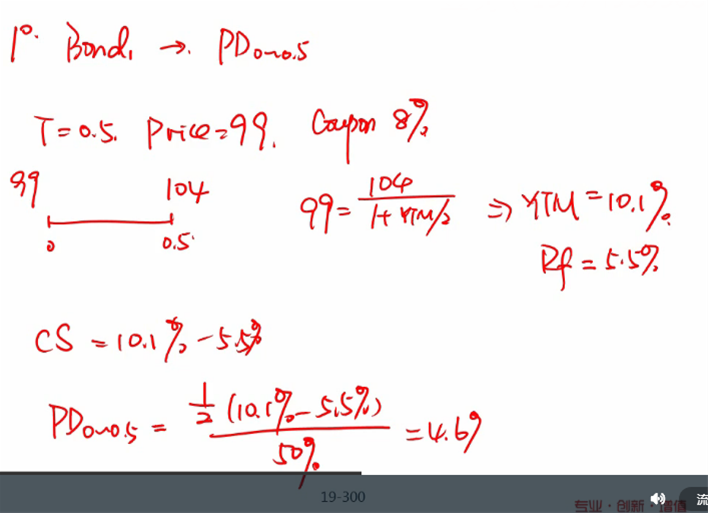 1°. Bond₁ → PD₀~₀.₅
T=0.5. Price=99. Coupon 8%
99 104
0 0.5
99 = 104 / 1+YTM/2 ⇒ YTM=10.1%
Rf = 5.5%
CS = 10.1% - 5.5%
PD₀~₀.₅ = ½ (10.1% - 5.5%) / 50% = 4.6%
19-300
专业·创新·增值
流